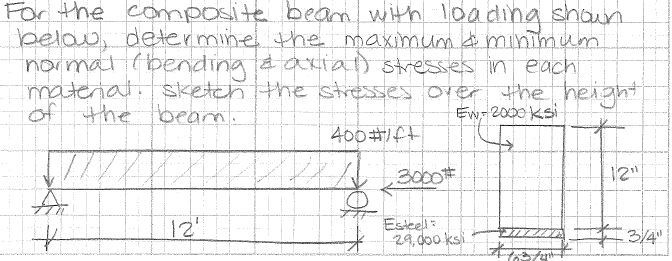 For the composite beam with loading shown
below, determine the maximum & minimum
normal (bending & axial) stresses in each
material. sketch the stresses over the height
of the beam.
Ew=2000 ksi
400#/ft
3000#
12"
12'
Esteel=
29,000 ksi
3/4"